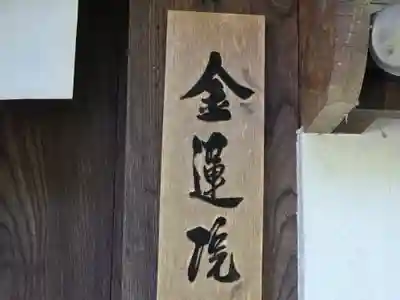 金運院